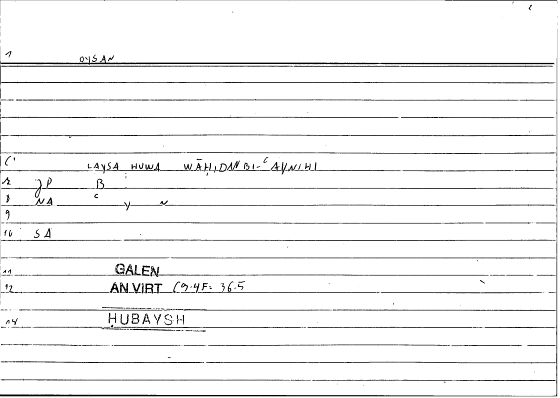 1 OYSAN
6 LAYSA HUWA WĀḤIDAN BI-ʿAYNIHI
2 JP B
8 NA C Y N
9
10 SA
11 GALEN
12 AN VIRT (9-4F: 36.5
14 ḤUBAYSH